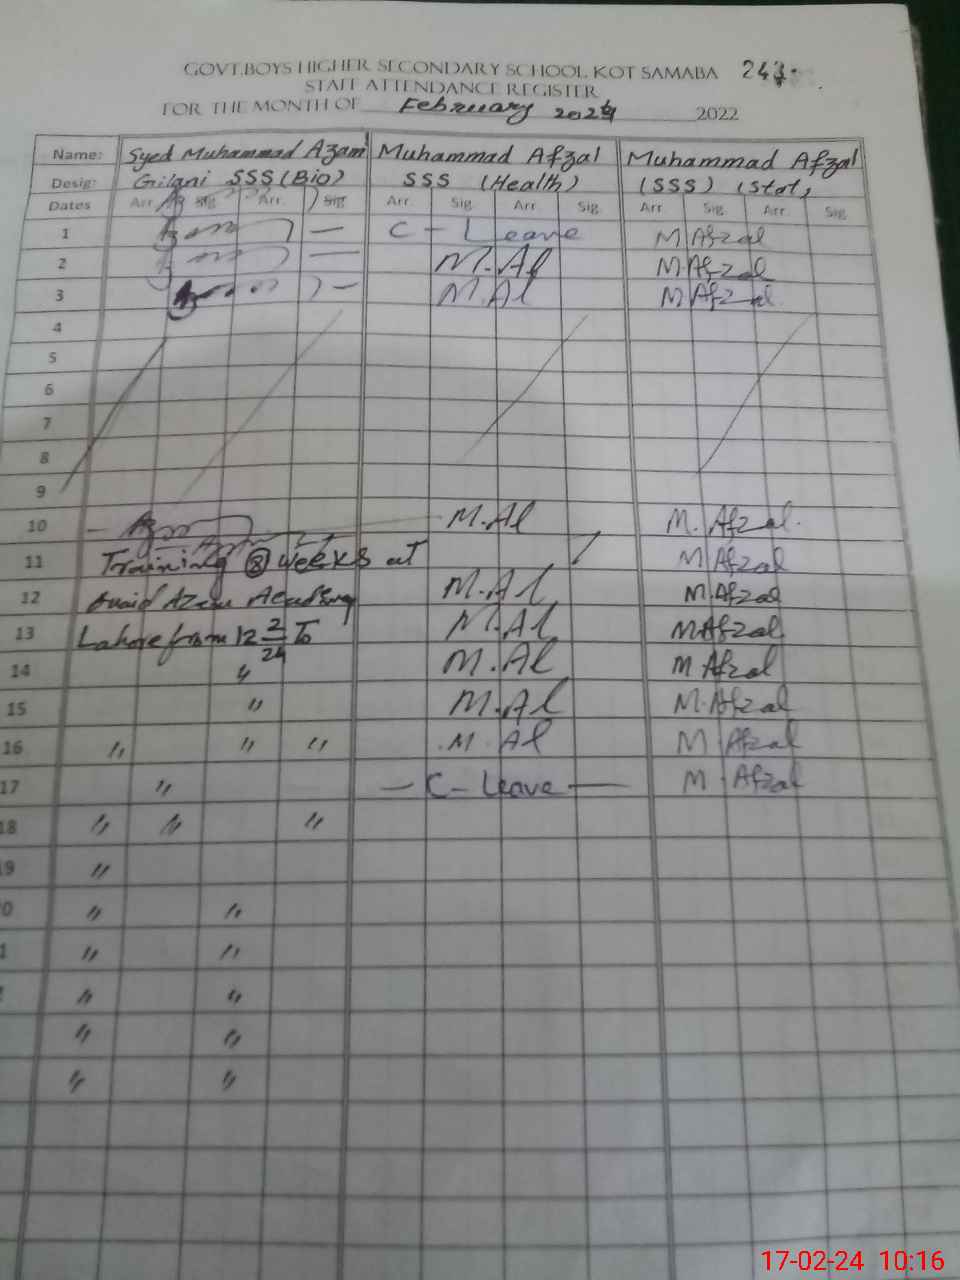 GOVT.BOYS HIGHER SECONDARY SCHOOL KOT SAMABA 247
STAFF ATTENDANCE REGISTER
FOR THE MONTH OF February 2024 2022
Name: Syed Muhammad Azam Muhammad Afzal Muhammad Afzal
Desig: Gilani SSS (Bio) SSS (Health) (SSS) (Stat)
Dates Arr. Sig. Arr. Sig. Arr. Sig. Arr. Sig. Arr. Sig. Arr. Sig.
1 — C - Leave M Afzal
2 — M.Al M.Afzal
3 — M.Al M Afzal
4
5
6
7
8
9
10 M.Al M. Afzal.
11 Training 8 weeks at M Afzal
12 Quaid Azam Academy M.Al M.Afzal
13 Lahore from 12 2/24 To M.Al M.Afzal
14 " M.Al M Afzal
15 " M.Al M.Afzal
16 " " " M.Al M Afzal
17 " — C - Leave — M. Afzal
18 " " "
19 "
0 " "
1 " "
" "
" "
" "
17-02-24 10:16